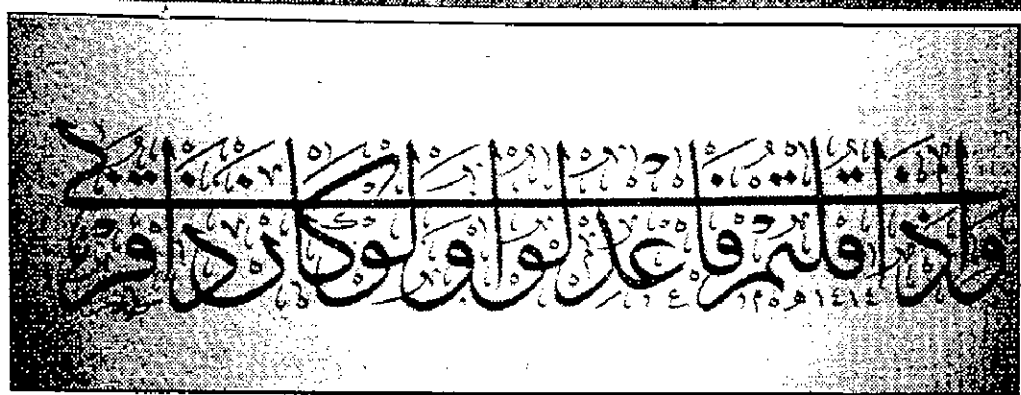 وإذا قلتم فاعدلوا ولو كان ذا قربى
١٤١٤هـ